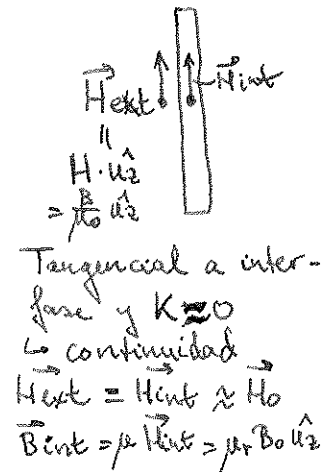 H⃗ext
H⃗int
||
H·û_z
= B/μ₀ û_z
Tangencial a inter-
fase y K≈0
↳ continuidad
H⃗ext = H⃗int ≈ H⃗₀
B⃗int = μ H⃗int = μr B₀ û_z